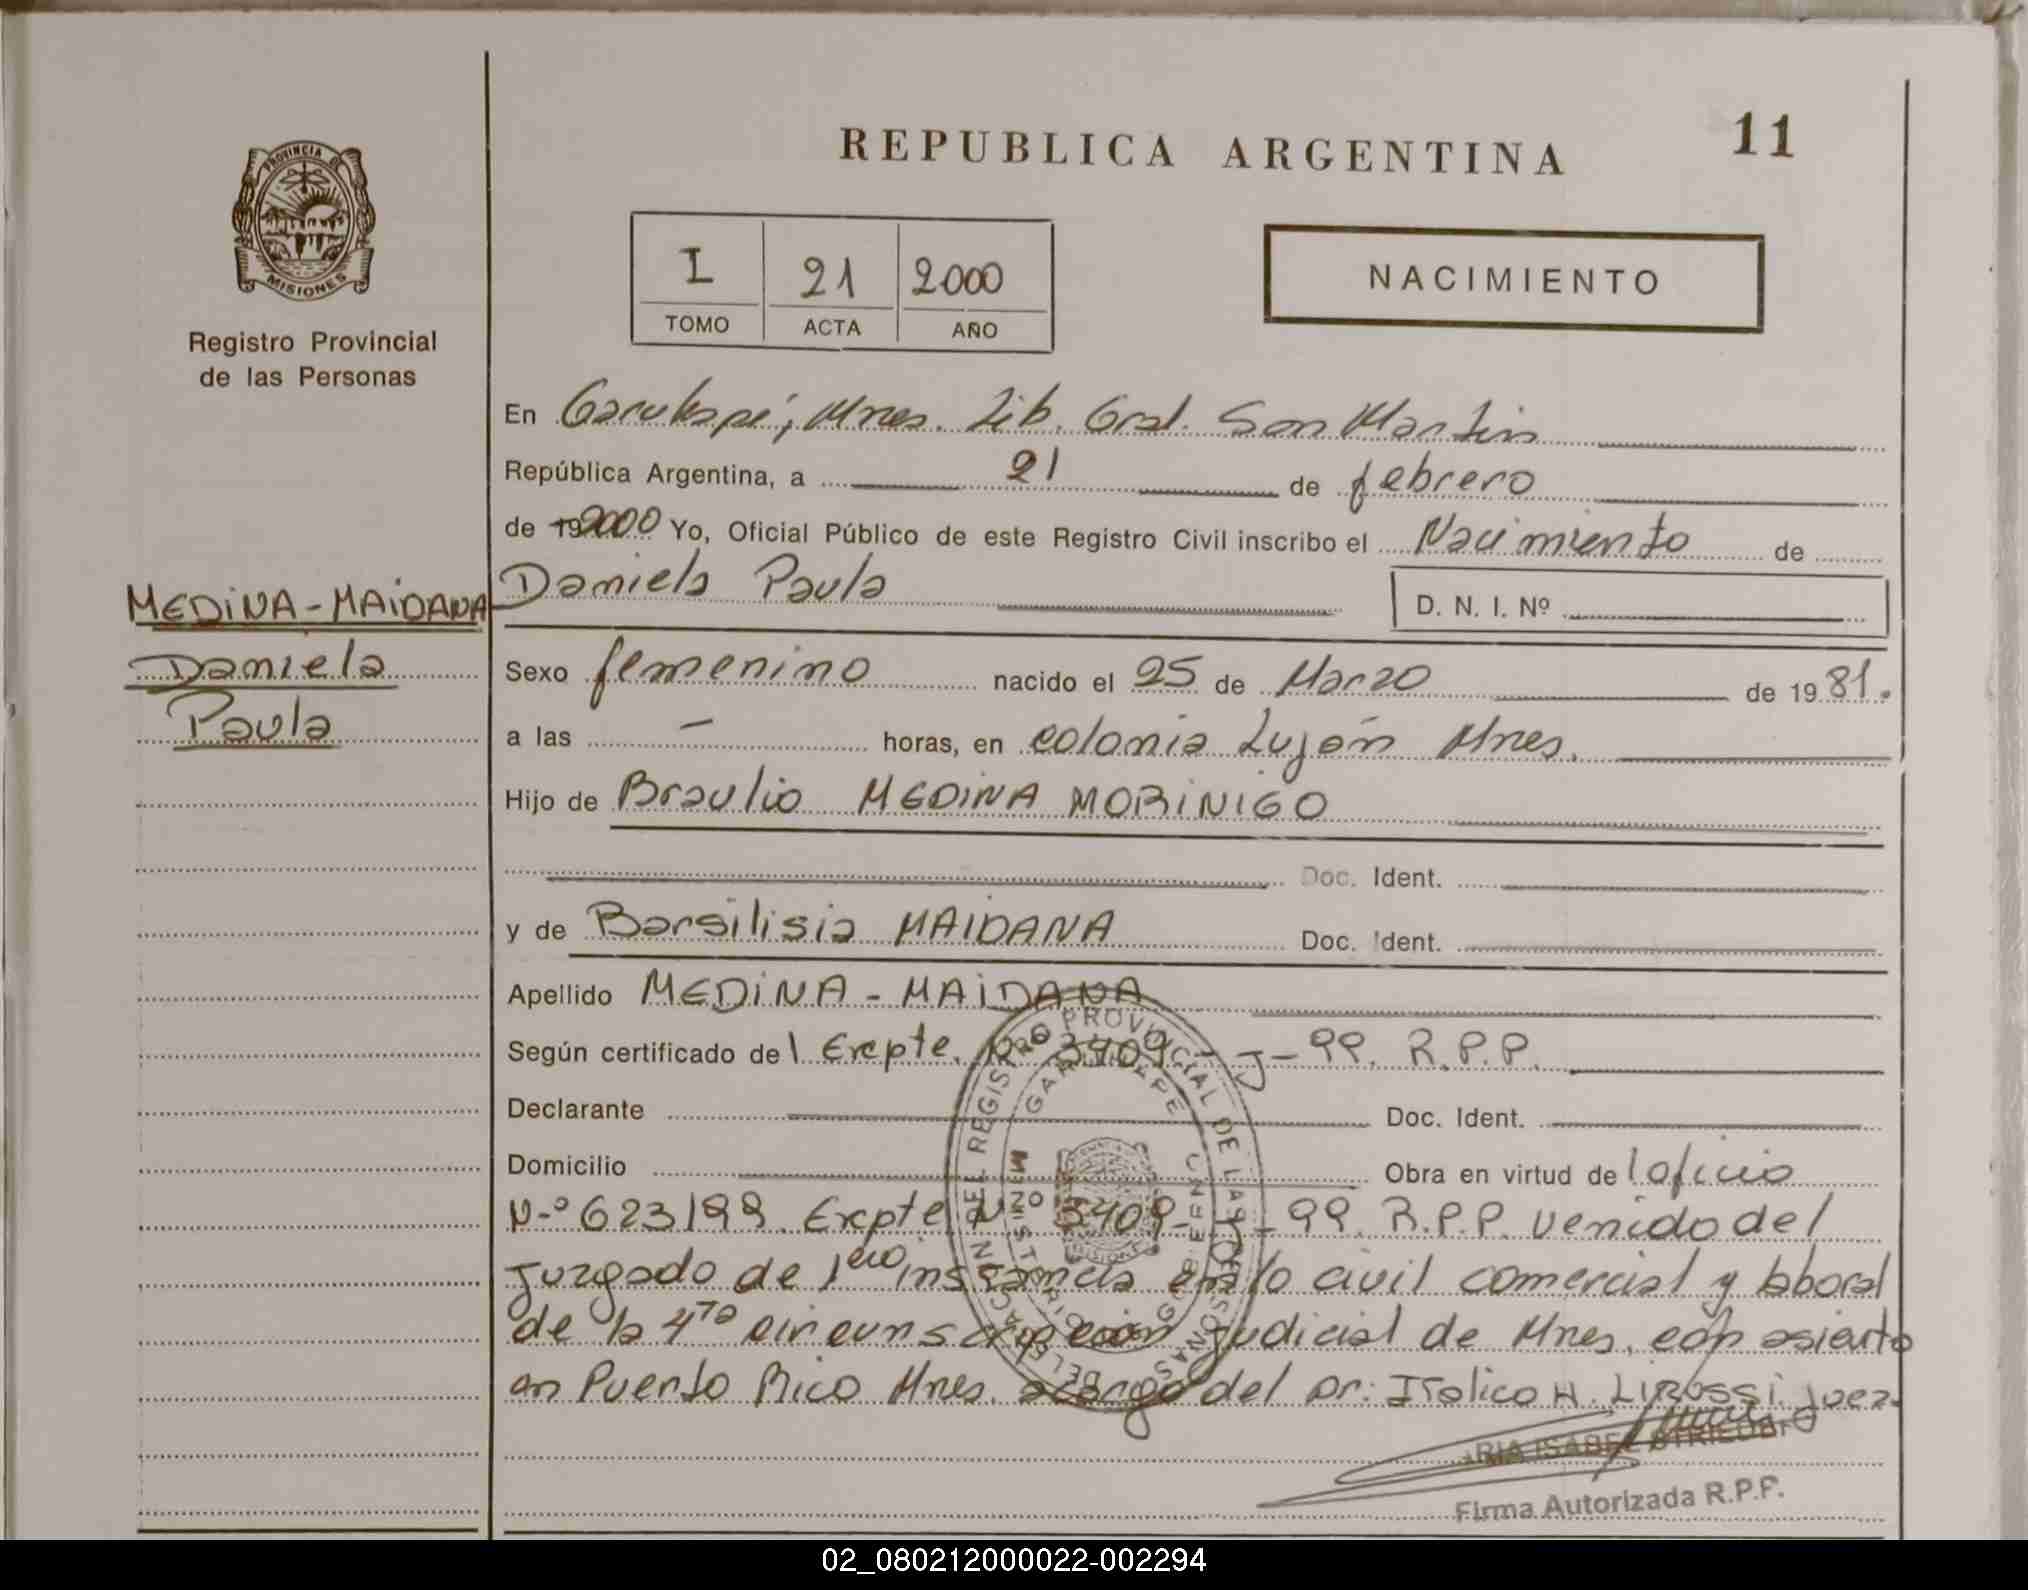 REPUBLICA ARGENTINA
11
PROVINCIA DE
MISIONES
Registro Provincial
de las Personas
I 21 2000
TOMO ACTA AÑO
NACIMIENTO
En Garuhapé, Mnes. Lib. Gral. San Martin
República Argentina, a 21 de febrero
de 19 2000 Yo, Oficial Público de este Registro Civil inscribo el Nacimiento de
MEDINA-MAIDANA
Daniela
Paula
Daniela Paula D. N. I. Nº
Sexo femenino nacido el 25 de Marzo de 1981.
a las - horas, en colonia Luján Mnes.
Hijo de Braulio MEDINA MORINIGO
Doc. Ident.
y de Barsilisia MAIDANA Doc. Ident.
Apellido MEDINA-MAIDANA
Según certificado del Excpte. Nº 3409-J-99. R.P.P.
Declarante Doc. Ident.
Domicilio Obra en virtud del oficio
N-º 623/99. Excpte Nº 3409-J-99. R.P.P. venido del
Juzgado de 1ero instancia en lo civil comercial y laboral
de la 4ta circunscripción judicial de Mnes. con asiento
en Puerto Rico Mnes. acargo del Dr: Italico H. Lirussi. Juez.
DELEGACION DEL REGISTRO PROVINCIAL DE LAS PERSONAS
MISIONES
RIA ISABEL
Firma Autorizada R.P.P.
02_080212000022-002294